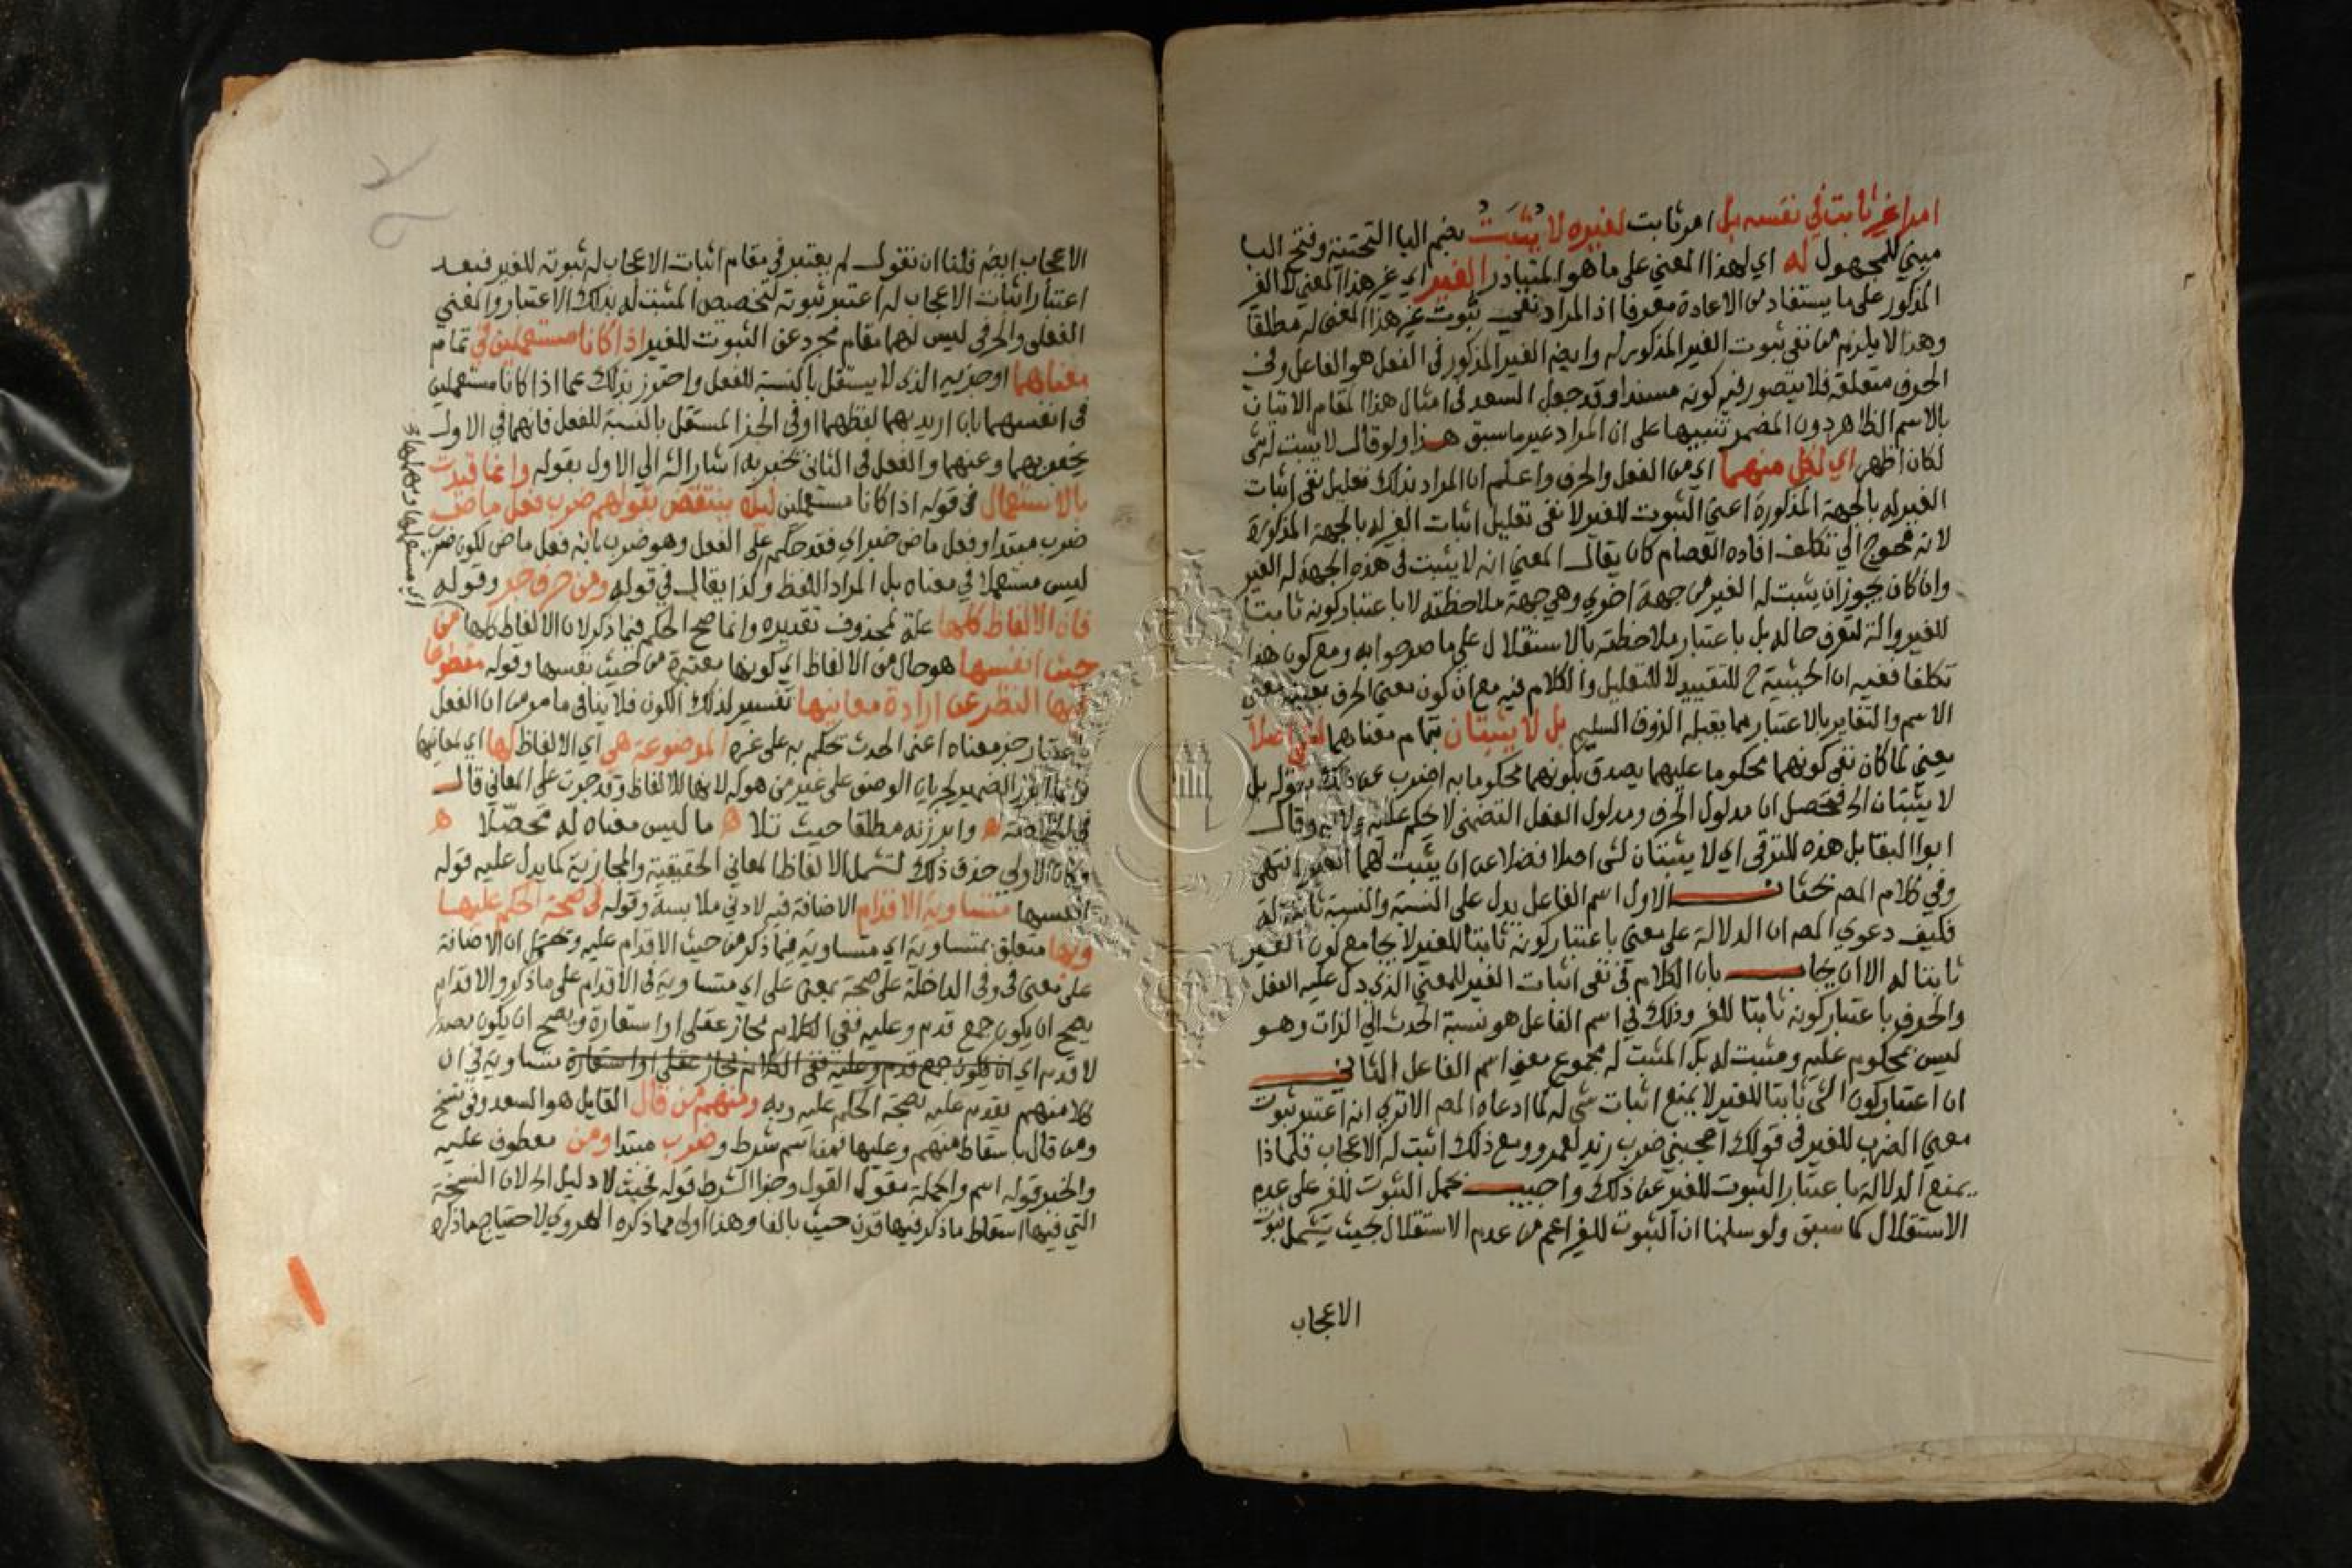 امرا غير ثابت في نفسه بل امر ثابت لغيره لا يُثْبَتُ بضم اليا التحتية وفتح البا
مبني للمجهول له اي لهذا المعني علي ما هو المتبادر الغير اي غير هذا المعني لا الغير
المذكور علي ما يستفاد من الاعادة معرفا اذ المراد نفي ثبوت غير هذا المعني له مطلقا
وهذا لا يلزم من نفي ثبوت الغير المذكور له وايضا الغير المذكور في الفعل هو الفاعل وفي
الحرف متعلقه فلا يتصور فيه كونه مسندا وقد جعل السعد في امثال هذا المقام الاتيان
بالاسم الظاهر دون المضمر تنبيها علي ان المراد غير ما سبق هذا ولو قال لا يثبت له شي
لكان اظهر اي لكل منهما اي من الفعل والحرف واعلم ان المراد بذلك تعليل نفي اثبات
الغير له بالجهة المذكورة اعني الثبوت للغير لا نفي تعليل اثبات الغير له بالجهة المذكورة
لانه محوج الي تكلف افاده العصام كان يقال المعني انه لا يثبت في هذه الجهة له الغير
وان كان يجوز ان يثبت له الغير من جهة اخري وهي جهة ملاحظته لا باعتبار كونه ثابتا
للغير والة لتعرف حاله بل باعتبار ملاحظته بالاستقلال علي ما صرحوا به ومع كون هذا
تكلفا ففيه ان الحيثية ح للتقييد لا للتعليل والكلام فيه مع ان كون معني الحرف بعينه معني
الاسم والتغاير بالاعتبار مما يقبله الذوق السليم بل لا يثبتان بتمام معناهما لشي اصلا
يعني لما كان نفي كونهما محكوما عليهما يصدق بكونهما محكوما به اضرب عن ذلك بقوله بل
لا يثبتان الخ فتحصل ان مدلول الحرف ومدلول الفعل التضمني لا يحكم عليه ولا به وقال
ابوا البقا بل هذه للترقي اي لا يثبتان لشي اصلا فضلا عن ان يثبت لهما الغير انتهي
وفي كلام المص بحثان الاول اسم الفاعل يدل علي النسبة والنسبة ثابتة له
فكيف دعوي المص ان الدلالة علي معني باعتبار كونه ثابتا للغير لا يجامع كون الغير
ثابتا له الا ان يجاب بان الكلام في نفي اثبات الغير للمعني الذي دل عليه الفعل
والحرف باعتبار كونه ثابتا للغير وذلك في اسم الفاعل هو نسبة الحدث الي الذات وهو
ليس بمحكوم عليه ومثبت له بل المثبت له مجموع معني اسم الفاعل الثاني
ان اعتبار كون الشي ثابتا للغير لا يمنع اثبات شي له لما ادعاه المص الا تري انه اعتبر ثبوت
معني الضرب للغير في قولك اعجبني ضرب زيد لعمرو ومع ذلك اثبت له الاعجاب فلماذا
يمنع الدلالة باعتبار الثبوت للغير عن ذلك واجيب بحمل الثبوت للغير علي عدم
الاستقلال كما سبق ولو سلمنا ان الثبوت للغير اعم من عدم الاستقلال بحيث يشمل ثبوت
الاعجاب
الاعجاب ايضا فلنا ان نقول لم يعتبر في مقام اثبات الاعجاب له ثبوته للغير فبعد
اعتبار اثبات الاعجاب له اعتبر ثبوته لتخصيص المثبت له بذلك الاعتبار والمعني
الفعلي والحرفي ليس لهما مقام مجرد عن الثبوت للغير اذا كانا مستعملين في تمام
معناهما او جزيه الذي لا يستقل بالنسبة للفعل واحترز بذلك عما اذا كانا مستعملين
في انفسهما بان اريد بهما لفظهما او في الجز المستقل بالنسبة للفعل فانهما في الاول
يخبر بهما وعنهما والفعل في الثاني يخبر به اشار الي الاول بقوله وانما قيدت
بالاستعمال في قوله اذا كانا مستعملين ليلا ينتقض بقولهم ضرب فعل ماض
ضرب مبتدا وفعل ماض خبر اي فقد حكم علي الفعل وهو ضرب بانه فعل ماض لكون ضرب
ليس مستعملا في معناه بل المراد اللفظ وكذا يقال في قوله ومن حرف جر وقوله
فان الالفاظ كلها علة لمحذوف تقديره وانما صح الحكم فيما ذكر لان الالفاظ كلها من
حيث انفسها هو حال من الالفاظ اي كونها معتبرة من حيث نفسها وقوله مقطوعا
فيها النظر عن ارادة معانيها تفسير لذلك الكون فلا ينافي ما مر من ان الفعل
باعتبار جز معناه اعني الحدث يحكم به علي غيره الموضوعة هي اي الالفاظ لها اي لمعانيها
وانما ابرز الضمير لجريان الوصف علي غير من هو له لانها للالفاظ وقد جرت علي المعاني قال
في الخلاصة ه وابرزنه مطلقا حيث تلا ه ما ليس معناه له محصّلا ه
وكان الاولي حذف ذلك لتشمل الالفاظ المعاني الحقيقية والمجازية كما يدل عليه قوله
انفسها متساوية الاقدام الاضافة فيه لادني ملابسة وقوله في صحة الحكم عليها
وبها متعلق بمتساوية اي متساوية فيما ذكر من حيث الاقدام عليه ويحتمل ان الاضافة
علي معني في وفي الداخلة علي صحة بمعني علي اي متساوية في الاقدام علي ما ذكر والاقدام
يصح ان يكون جمع قدم وعليه ففي الكلام مجاز عقلي او استعارة ويصح ان يكون مصدر
لاقدم اي ان يكون جمع قدم وعليه ففي الكلام مجاز عقلي او استعارة متساوية في ان
كلا منهم يقدم عليه بصحة الحكم عليه وبه ومنهم من قال القايل هو السعد وفي نسخ
ومن قال باسقاط منهم وعليها فمن اسم شرط وضرب مبتدا ومن معطوف عليه
والخبر قوله اسم والجملة مقول القول وجزا الشرط قوله فحيث لا دليل الخ لان النسخة
التي فيها اسقاط ما ذكر فيها قرن حيث بالفا وهذا اولي مما ذكره الهروي لاحتياج ما ذكره
اي مستعملها ومهملها